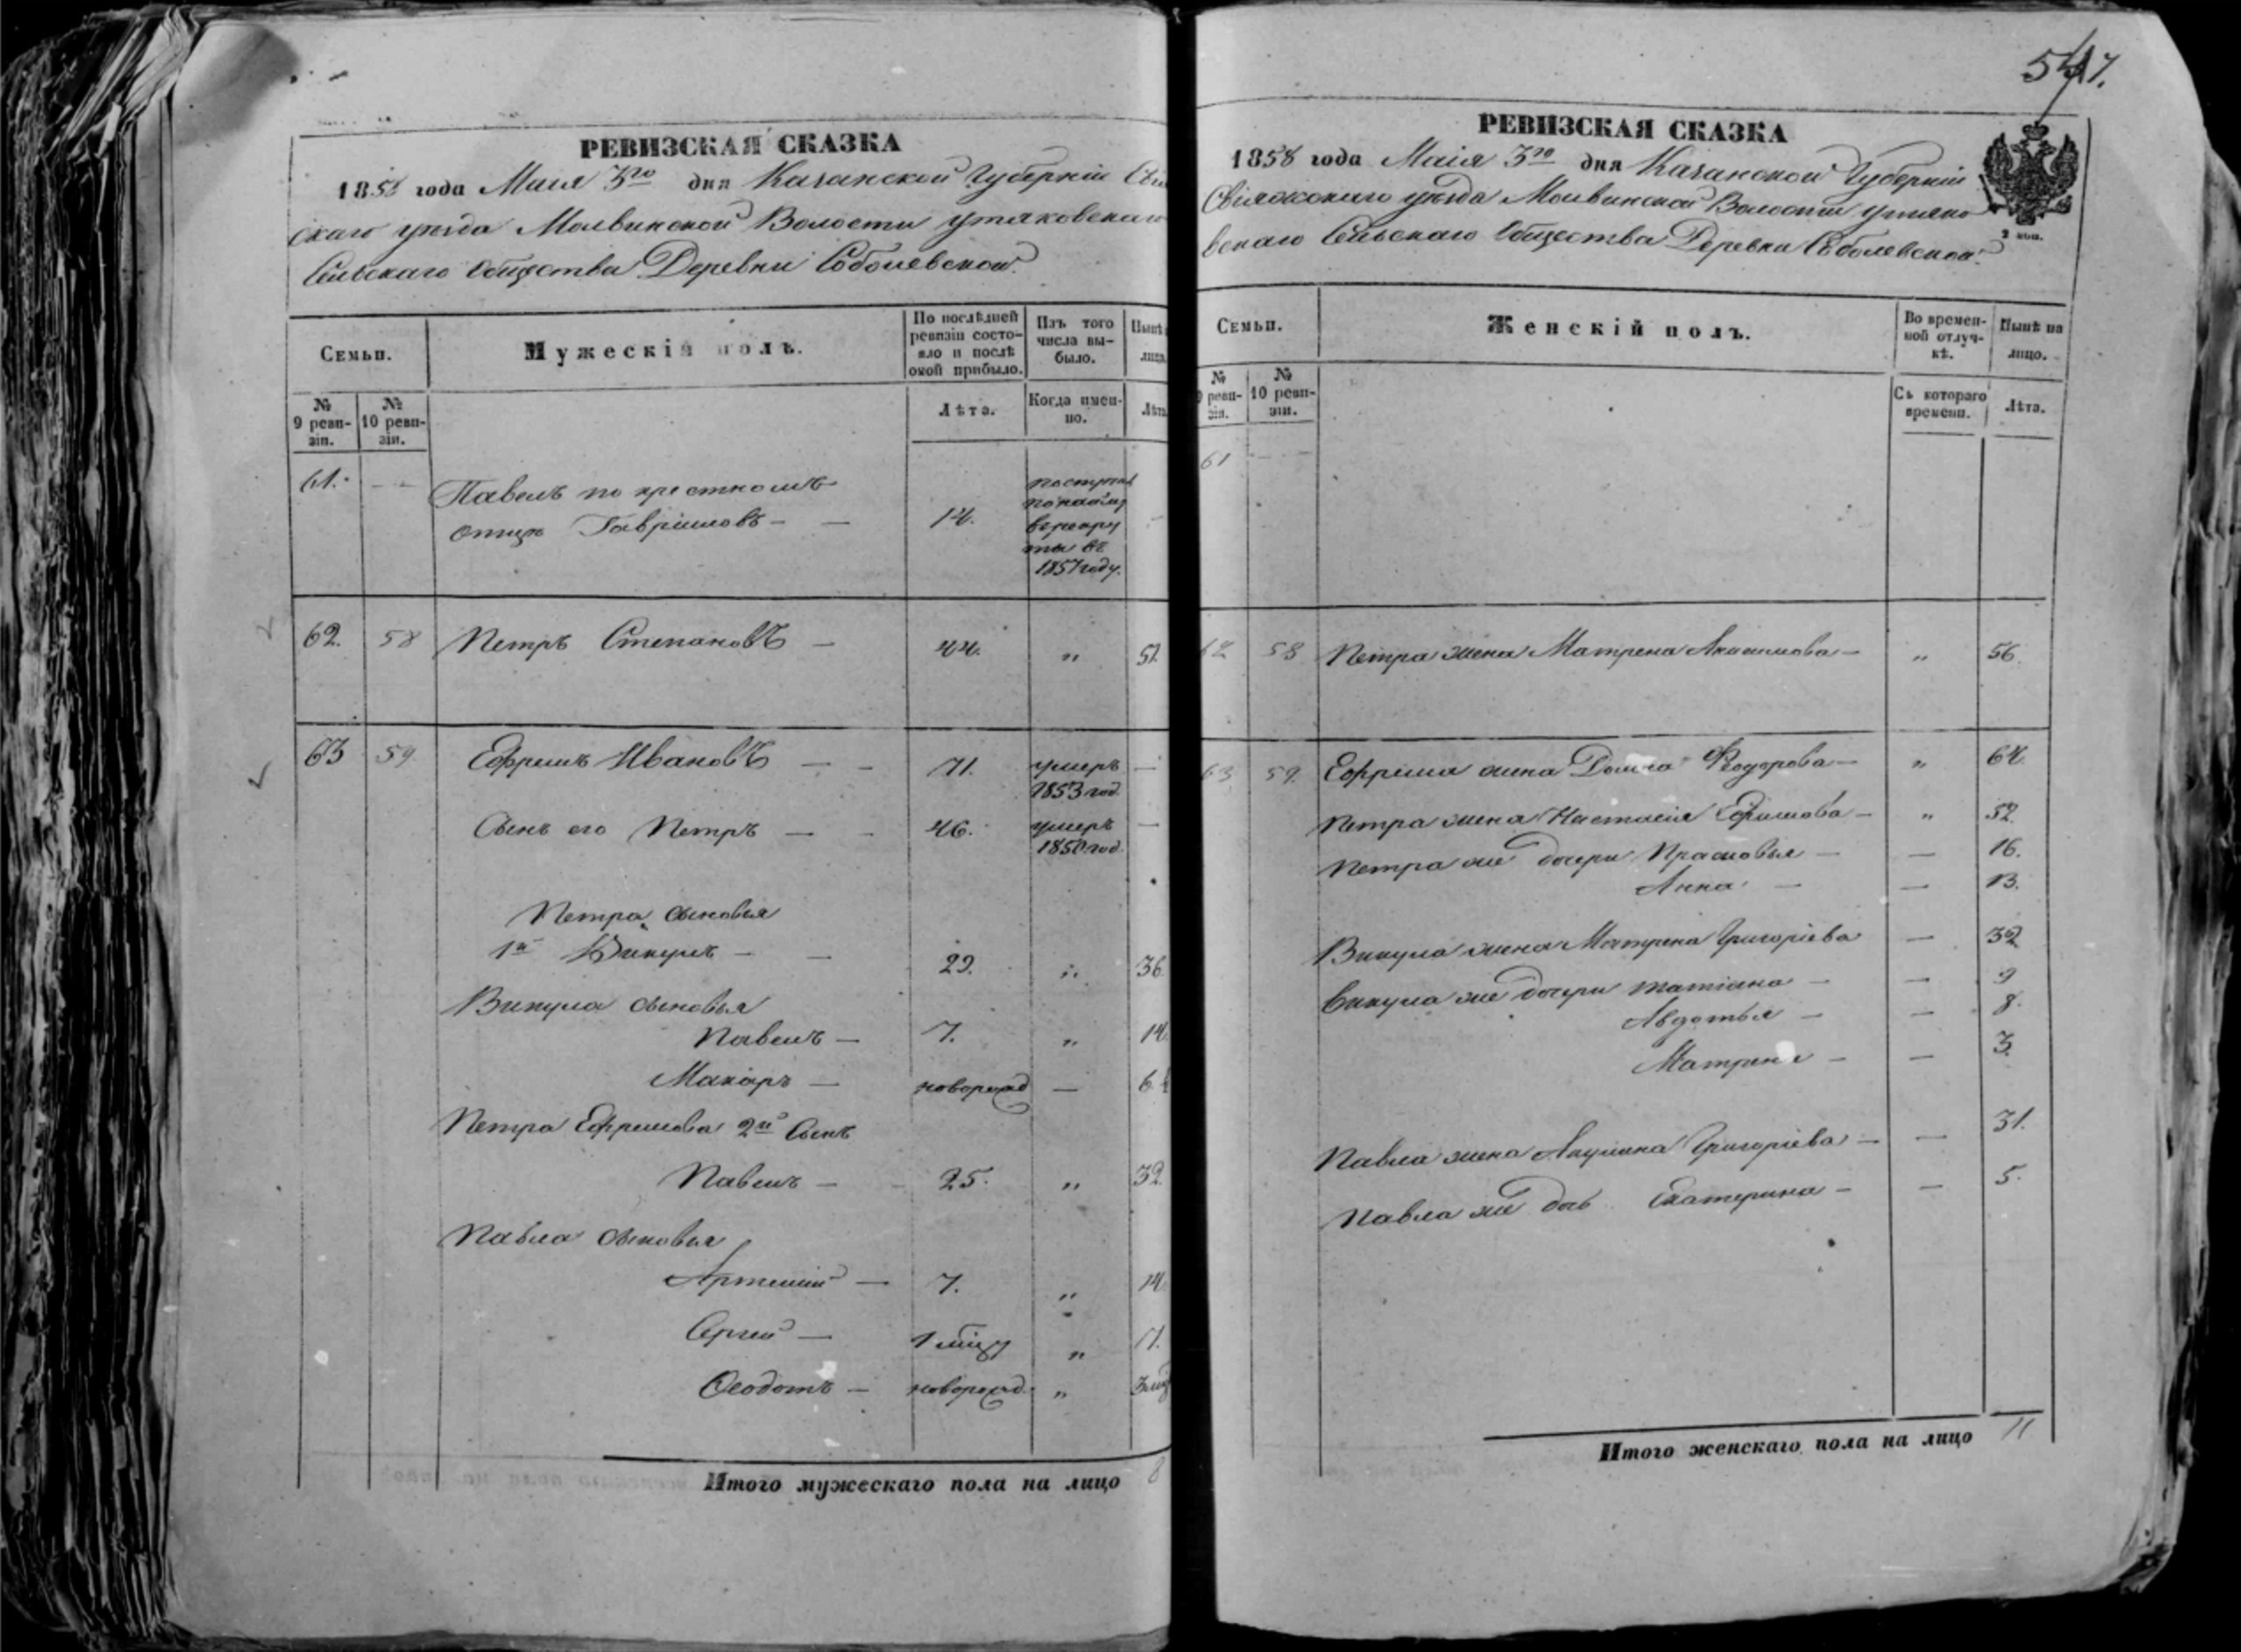 547.
РЕВИЗСКАЯ СКАЗКА
1858 года Маія 3го дня Казанской Губерніи Сві
скаго уѣзда Молвинской Волости Утяковскаго
Сельскаго Общества Деревни Соболевской.
Семьи.
Мужескій полъ.
По послѣдней ревизіи состояло и послѣ оной прибыло.
Изъ того числа выбыло.
Нынѣ
лицо.
№ 9 ревизіи.
№ 10 ревизіи.
Лѣта.
Когда именно.
Лѣта.
61. — Павелъ по крестномъ
отцѣ Гавриловъ — — 14. поступил по найму в рекруты въ 1857 году. —
62. 58 Петръ Степановъ — 44. „ 52
63 59 Ефремъ Ивановъ — — 71. умеръ 1853 год. —
Сынъ его Петръ — — 46. умеръ 1850 год. —
Петра сыновья
1й Викулъ — — 29. „ 36
Викула сыновья
Павелъ — 7. „ 14
Макаръ — новорожд — 6.
Петра Ефремова 2й Сынъ
Павелъ — — 25. „ 32
Павла сыновья
Артемій — 7. „ 14
Сергей — „
Ѳеодотъ — новорожд. „
Итого мужескаго пола на лицо 8
РЕВИЗСКАЯ СКАЗКА
1858 года Маія 3го дня Казанской Губерніи
Свіяжскаго уѣзда Молвинской Волости Утяко
вскаго Сельскаго Общества Деревни Соболевской.
2 коп.
Семьи.
Женскій полъ.
Во временной отлучкѣ.
Нынѣ на лицо.
№ 9 ревизіи.
№ 10 ревизіи.
Съ котораго времени.
Лѣта.
61 — —
62 58 Петра жена Матрена — „ 56
63 59. Ефрема жена Домна Ѳедорова — „ 64.
Петра жена Настасія Ефимова — „ 52.
Петра же дочери Прасковья — — 16.
Анна — — 13.
Викула жена Матрена Григоріева — 32
Викула же дочери Татіана — — 9
Авдотья — — 8.
Матрена — — 3.
Павла жена Акулина Григоріева — — 31.
Павла же дочь Екатерина — — 5.
Итого женскаго пола на лицо 11